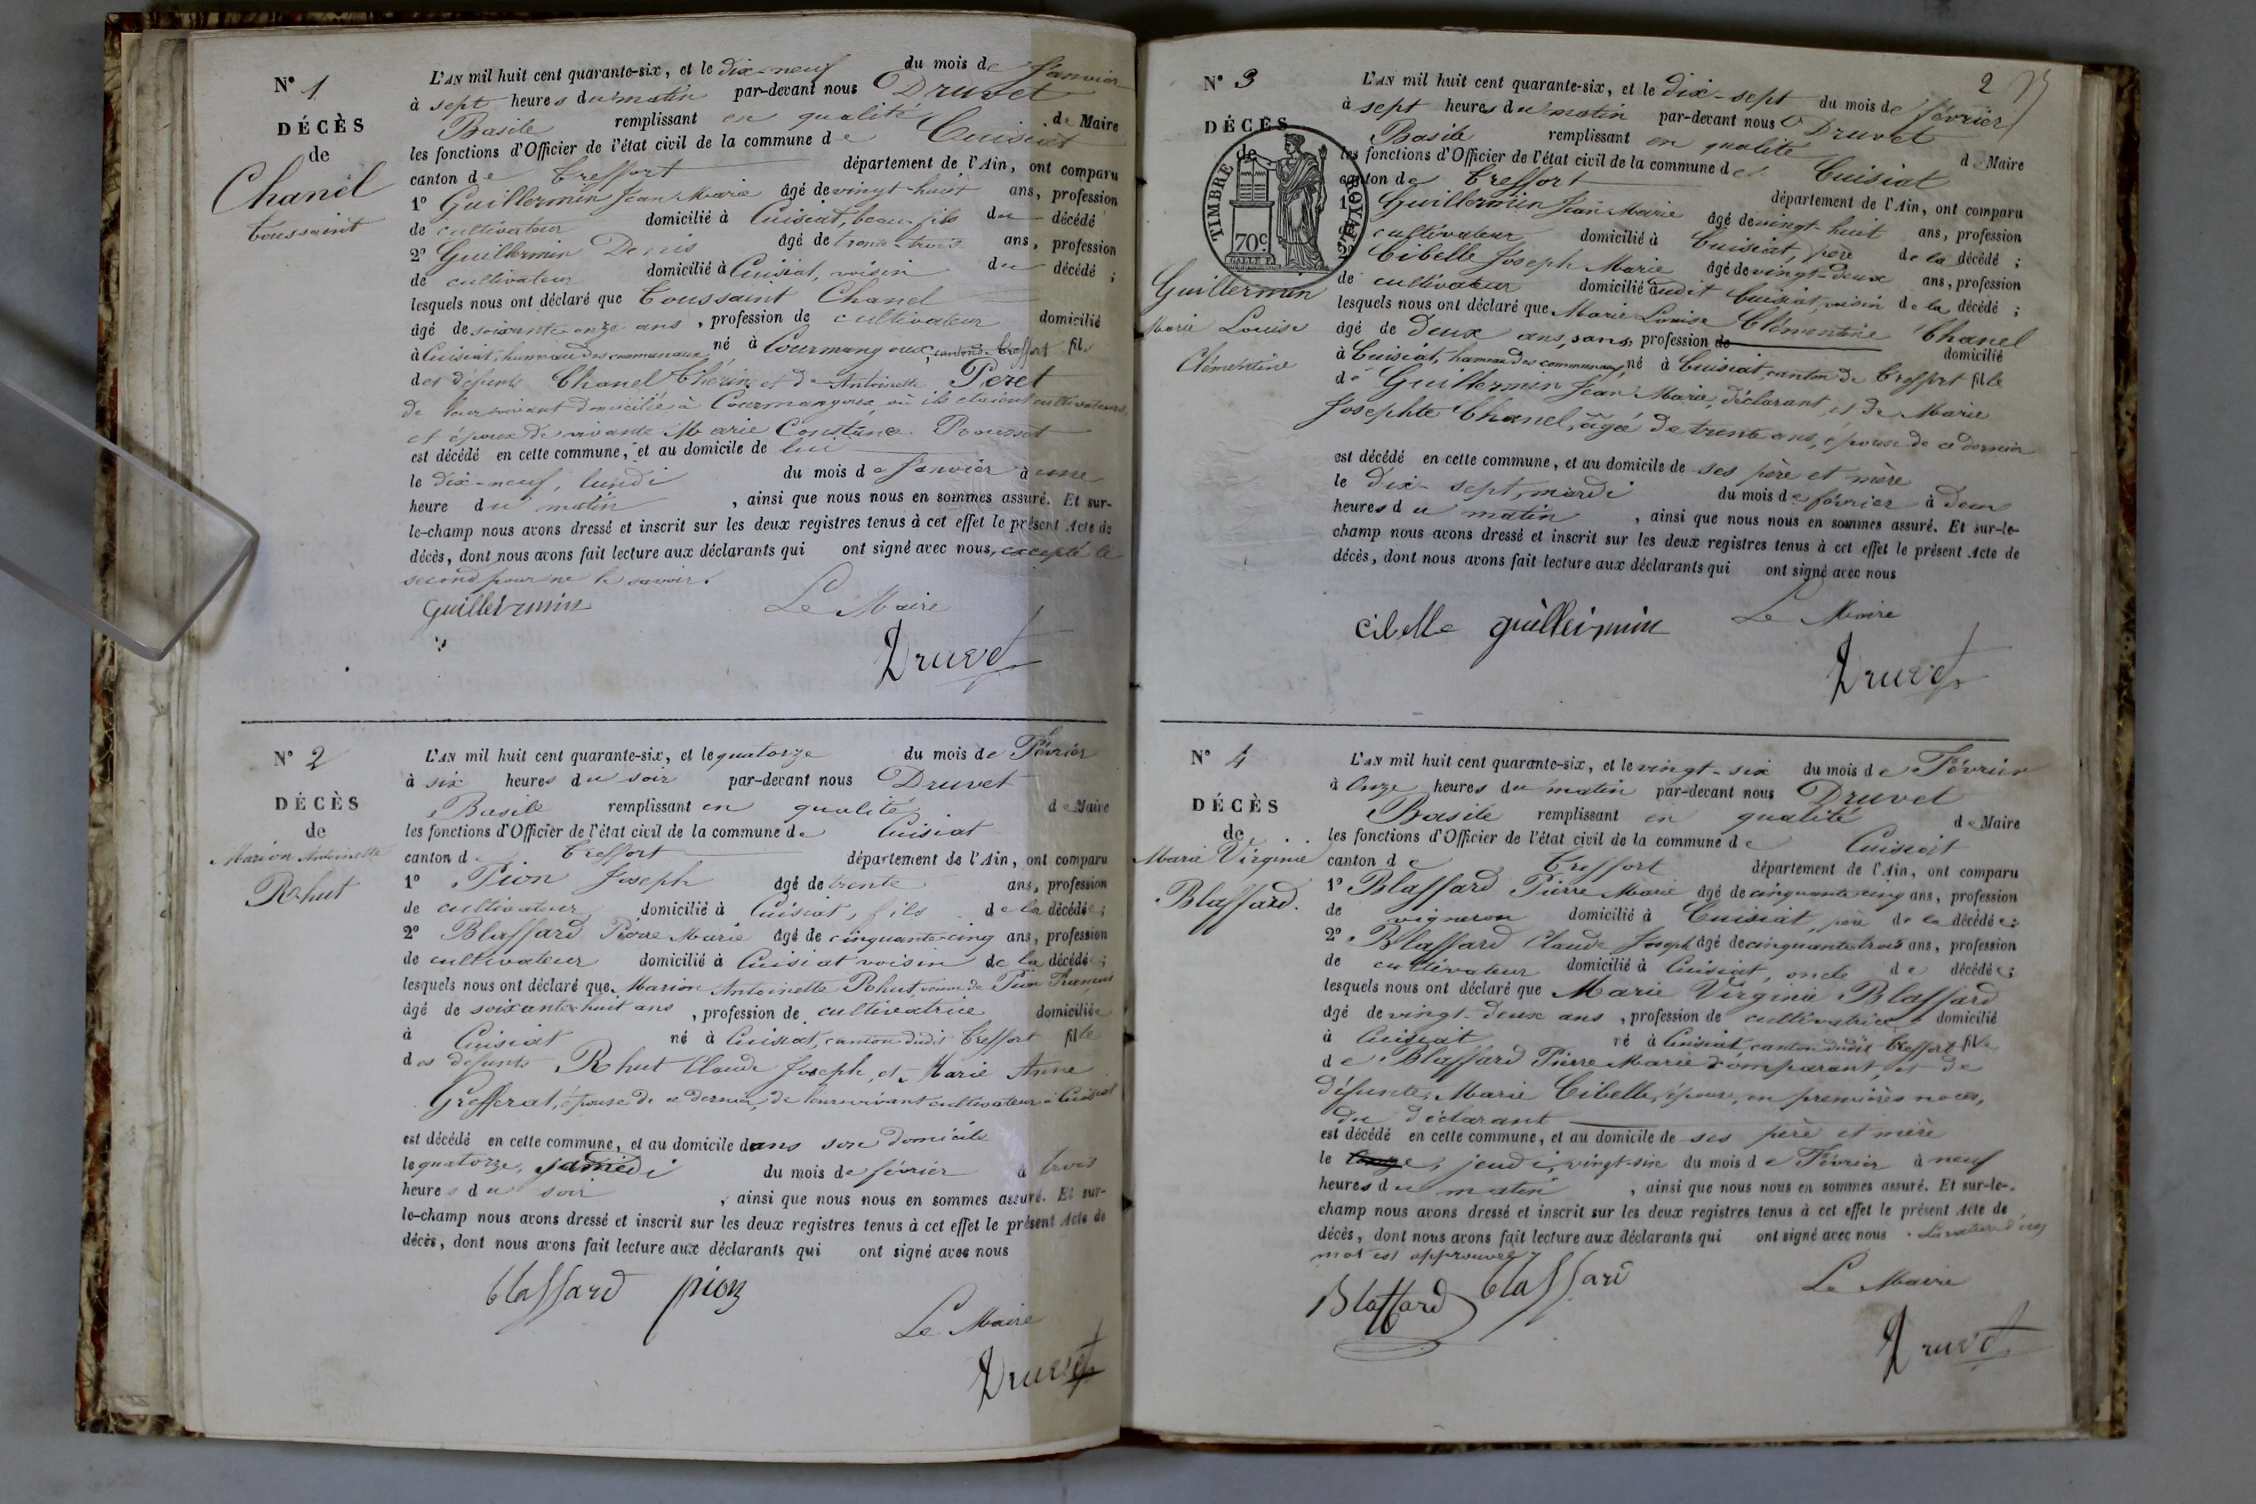 N° 1
DÉCÈS
de
Chanel
Toussaint
L'AN mil huit cent quarante-six, et le dix-neuf du mois de Janvier
à sept heures du matin par-devant nous Druvet
Basile remplissant en qualité de Maire
les fonctions d'Officier de l'état civil de la commune de Cuisiat
canton de Treffort département de l'Ain, ont comparu
1° Guillermin Jean Marie âgé de vingt-huit ans, profession
de cultivateur domicilié à Cuisiat, beau-fils du décédé
2° Guillermin Denis âgé de trente-trois ans, profession
de cultivateur domicilié à Cuisiat, voisin du décédé ;
lesquels nous ont déclaré que Toussaint Chanel
âgé de soixante-onze ans, profession de cultivateur domicilié
à Cuisiat, hameau des communaux, né à Courmangoux, canton de Treffort fils
des défunts Chanel et de Antoinette Peret
de leur vivant domiciliés à Courmangoux, où ils étaient cultivateurs,
et époux de vivante Marie Constance
est décédé en cette commune, et au domicile de lui
le dix-neuf, lundi du mois de Janvier à une
heure du matin, ainsi que nous nous en sommes assuré. Et sur-
le-champ nous avons dressé et inscrit sur les deux registres tenus à cet effet le présent Acte de
décès, dont nous avons fait lecture aux déclarants qui ont signé avec nous, excepté le
second pour ne le savoir.
guillermin Le Maire
Druvet
N° 2
DÉCÈS
de
Marion Antoinette
Rhut
L'AN mil huit cent quarante-six, et le quatorze du mois de Février
à six heures du soir par-devant nous Druvet
Basile remplissant en qualité de Maire
les fonctions d'Officier de l'état civil de la commune de Cuisiat
canton de Treffort département de l'Ain, ont comparu
1° Pion Joseph âgé de trente ans, profession
de cultivateur domicilié à Cuisiat, fils de la décédée ;
2° Blaffard Pierre Marie âgé de cinquante-cinq ans, profession
de cultivateur domicilié à Cuisiat voisin de la décédée ;
lesquels nous ont déclaré que Marion Antoinette Rhut, veuve de Pion François
âgé de soixante-huit ans, profession de cultivatrice domiciliée
à Cuisiat né à Cuisiat, canton dudit Treffort fille
des défunts Rhut Claude Joseph, et Marie Anne
Grefferat, épouse de ce dernier, de leur vivant cultivateurs à Cuisiat
est décédé en cette commune, et au domicile dans son domicile
le quatorze, samedi du mois de février à trois
heures du soir, ainsi que nous nous en sommes assuré. Et sur-
le-champ nous avons dressé et inscrit sur les deux registres tenus à cet effet le présent Acte de
décès, dont nous avons fait lecture aux déclarants qui ont signé avec nous
blaffard pion
Le Maire
Druvet
2
N° 3
DÉCÈS
de
TIMBRE ROYAL
70c
Guillermin
Marie Louise
Clémentine
L'AN mil huit cent quarante-six, et le dix-sept du mois de février
à sept heures du matin par-devant nous Druvet
Basile remplissant en qualité de Maire
les fonctions d'Officier de l'état civil de la commune de Cuisiat
canton de Treffort département de l'Ain, ont comparu
1° Guillermin Jean Marie âgé de vingt huit ans, profession
cultivateur domicilié à Cuisiat, père de la décédé ;
2° Cibelle Joseph Marie âgé de vingt-deux ans, profession
de cultivateur domicilié audit Cuisiat, voisin de la décédé ;
lesquels nous ont déclaré que Marie Louise Clémentine Chanel
âgé de deux ans, sans profession de domicilié
à Cuisiat, hameau des communaux, né à Cuisiat, canton de Treffort fille
de Guillermin Jean Marie, déclarant, et de Marie
Josephte Chanel, âgée de trente ans, épouse de ce dernier
est décédé en cette commune, et au domicile de ses père et mère
le dix-sept, mardi du mois de février à deux
heures du matin, ainsi que nous nous en sommes assuré. Et sur-le-
champ nous avons dressé et inscrit sur les deux registres tenus à cet effet le présent Acte de
décès, dont nous avons fait lecture aux déclarants qui ont signé avec nous
cibelle guillermin Le Maire
Druvet
N° 4
DÉCÈS
de
Marie Virginie
Blaffard.
L'AN mil huit cent quarante-six, et le vingt-six du mois de Février
à onze heures du matin par-devant nous Druvet
Basile remplissant en qualité de Maire
les fonctions d'Officier de l'état civil de la commune de Cuisiat
canton de Treffort département de l'Ain, ont comparu
1° Blaffard Pierre Marie âgé de cinquante cinq ans, profession
de vigneron domicilié à Cuisiat, père de la décédée ;
2° Blaffard Claude Joseph âgé de cinquante-trois ans, profession
de cultivateur domicilié à Cuisiat, oncle de décédée ;
lesquels nous ont déclaré que Marie Virginie Blaffard
âgé de vingt-deux ans, profession de cultivatrice domicilié
à Cuisiat né à Cuisiat, canton dudit Treffort fille
de Blaffard Pierre Marie comparant, et de
défunte Marie Cibelle, épouse, en premières noces,
du déclarant
est décédé en cette commune, et au domicile de ses père et mère
le jeudi, vingt-six du mois de Février à neuf
heures du matin, ainsi que nous nous en sommes assuré. Et sur-le-
champ nous avons dressé et inscrit sur les deux registres tenus à cet effet le présent Acte de
décès, dont nous avons fait lecture aux déclarants qui ont signé avec nous.
mot est approuvée
Blaffard blaffard Le Maire
Druvet